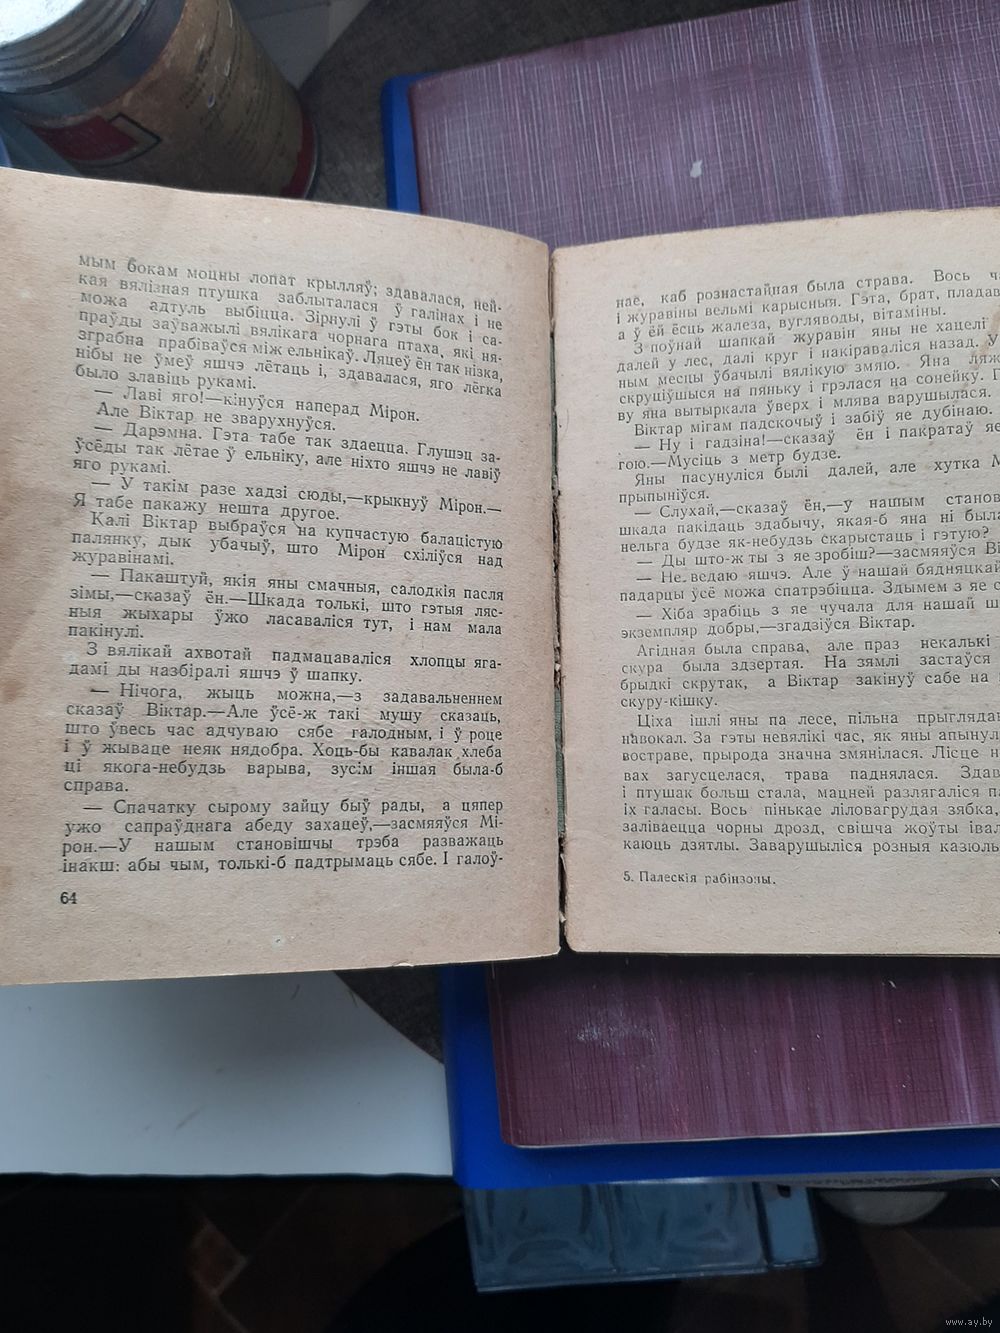 мым бокам моцны лопат крылляў; здавалася, ней-
кая вялізная птушка заблыталася ў галінах і не
можа адтуль выбіцца. Зірнулі ў гэты бок і са-
праўды заўважылі вялікага чорнага птаха, які ня-
зграбна прабіваўся між ельнікаў. Ляцеў ён так нізка,
нібы не ўмеў яшчэ лётаць і, здавалася, яго лёгка
было злавіць рукамі.
— Лаві яго!—кінуўся наперад Мірон.
Але Віктар не зварухнуўся.
— Дарэмна. Гэта табе так здаецца. Глушэц за-
ўсёды так лётае ў ельніку, але ніхто яшчэ не лавіў
яго рукамі.
— У такім разе хадзі сюды,—крыкнуў Мірон.—
Я табе пакажу нешта другое.
Калі Віктар выбраўся на купчастую балацістую
палянку, дык убачыў, што Мірон схіліўся над
журавінамі.
— Пакаштуй, якія яны смачныя, салодкія пасля
зімы,—сказаў ён.—Шкада толькі, што гэтыя ляс-
ныя жыхары ўжо ласаваліся тут, і нам мала
пакінулі.
З вялікай ахвотай падмацаваліся хлопцы яга-
дамі ды назбіралі яшчэ ў шапку.
— Нічога, жыць можна,—з задавальненнем
сказаў Віктар.—Але ўсё-ж такі мушу сказаць,
што ўвесь час адчуваю сябе галодным, і ў роце
і ў жываце неяк нядобра. Хоць-бы кавалак хлеба
ці якога-небудзь варыва, зусім іншая была-б
справа.
— Спачатку сырому зайцу быў рады, а цяпер
ужо сапраўднага абеду захацеў,—засмяяўся Мі-
рон.—У нашым становішчы трэба разважаць
інакш: абы чым, толькі-б падтрымаць сябе. І галоў-
64
нае, каб рознастайная была страва. Вось
і журавіны вельмі карысныя. Гэта, брат,
а ў ёй ёсць жалеза, вугляводы, вітаміны.
З поўнай шапкай журавін яны не хацелі
далей у лес, далі круг і накіраваліся назад.
ным месцы ўбачылі вялікую змяю. Яна
скруціўшыся на пяньку і грэлася на сонейку.
ву яна вытыркала ўверх і млява варушылася.
Віктар мігам падскочыў і забіў яе дубінаю.
— Ну і гадзіна!—сказаў ён і пакратаў яе
гою.—Мусіць з метр будзе.
Яны пасунуліся былі далей, але хутка
прыпыніўся.
— Слухай,—сказаў ён,—у нашым
шкада пакідаць здабычу, якая-б яна ні
нельга будзе як-небудзь скарыстаць і гэтую?
— Ды што-ж ты з яе зробіш?—засмяяўся
— Не ведаю яшчэ. Але ў нашай бядняцкай
падарцы ўсё можа спатрэбіцца. Здымем з яе
— Хіба зрабіць з яе чучала для нашай
экземпляр добры,—згадзіўся Віктар.
Агідная была справа, але праз некалькі
скура была здзертая. На зямлі застаўся
брыдкі скрутак, а Віктар закінуў сабе на
скуру-кішку.
Ціха ішлі яны па лесе, пільна
навокал. За гэты невялікі час, як яны
востраве, прырода значна змянілася. Лісце
вах загусцелася, трава паднялася.
і птушак больш стала, мацней разлягаліся
іх галасы. Вось пінькае ліловагрудая зябка,
заліваецца чорны дрозд, свішча жоўты
каюць дзятлы. Заварушыліся розныя
5. Палескія рабінзоны.
www.ay.by